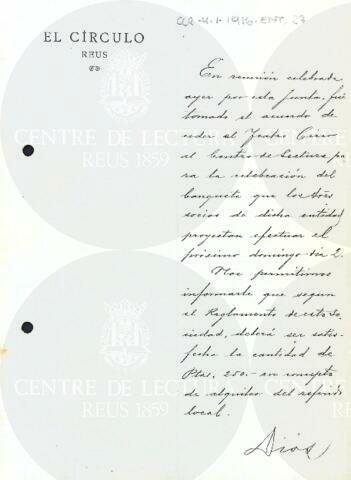 CCR-U.1-1916-ENTR. 27
EL CÍRCULO
REUS
En reunión celebrada
ayer por esta Junta, fué
tomado el acuerdo de
ceder el Teatro Circo
al Centro de Lectura pa
ra la celebración del
banquete que los Sres
socios de dicha entidad
proyectan efectuar el
próximo domingo dia 2.
Nos permitimos
informarle que según
el Reglamento de esta So
ciedad, deberá ser satis-
fecha la cantidad de
Ptas. 250.- en concepto
de alquiler del referido
local.
Dios
CENTRE DE LECTURA
REUS 1859
CENTRE DE LECTURA
REUS 1859